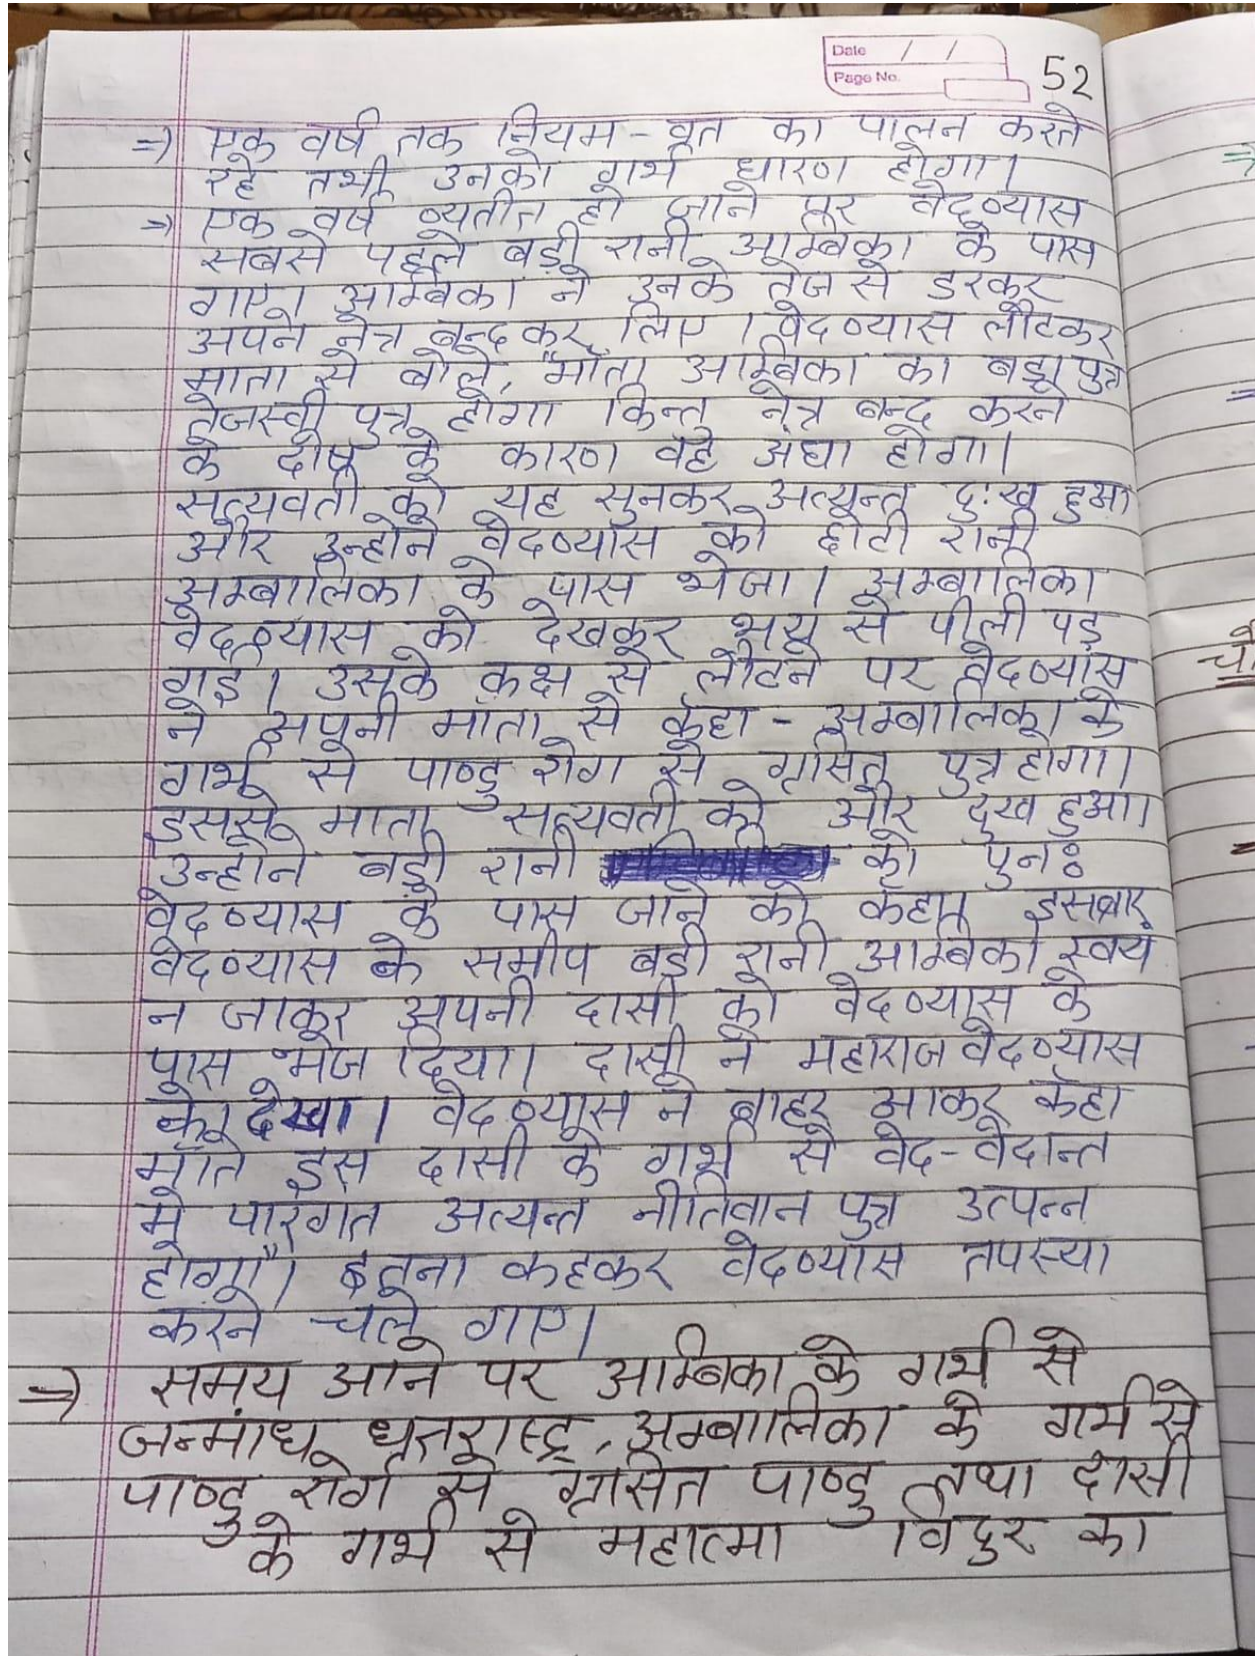 Date / /
Page No.
52
=> एक वर्ष तक नियम - व्रत का पालन करते
रहे तभी उनको गर्भ धारण होगा।
=> एक वर्ष व्यतीत हो जाने पर वेदव्यास
सबसे पहले बड़ी रानी अम्बिका के पास
गए। अम्बिका ने उनके तेज से डरकर
अपने नेत्र बन्द कर लिए। वेदव्यास लौटकर
माता से बोले, "माँता अम्बिका का बड़ा पुत्र
तेजस्वी पुत्र होगा किन्तु नेत्र बन्द करने
के दोष के कारण वह अंधा होगा।
सत्यवती को यह सुनकर अत्यन्त दुःख हुआ
और उन्होंने वेदव्यास को छोटी रानी
अम्बालिका के पास भेजा। अम्बालिका
वेदव्यास को देखकर भय से पीली पड़
गई। उसके कक्ष से लौटने पर वेदव्यास
ने अपनी माँता से कहा - अम्बालिका के
गर्भ से पाण्डु रोग से ग्रसित पुत्र होगा।
इससे माता सत्यवती को और दुख हुआ।
उन्होंने बड़ी रानी को पुनः
वेदव्यास के पास जाने को कहा। इसबार
वेदव्यास के समीप बड़ी रानी अम्बिका स्वयं
न जाकर अपनी दासी को वेदव्यास के
पास भेज दिया। दासी ने महाराज वेदव्यास
को देखा। वेदव्यास ने बाहर आकर कहा
माँते इस दासी के गर्भ से वेद-वेदान्त
मे पारंगत अत्यन्त नीतिवान पुत्र उत्पन्न
होगा"। इतना कहकर वेदव्यास तपस्या
करने चले गए।
=> समय आने पर अम्बिका के गर्भ से
जन्मांध धृतराष्ट्र, अम्बालिका के गर्भ से
पाण्डु रोग से ग्रसित पाण्डु तथा दासी
के गर्भ से महात्मा विदुर का